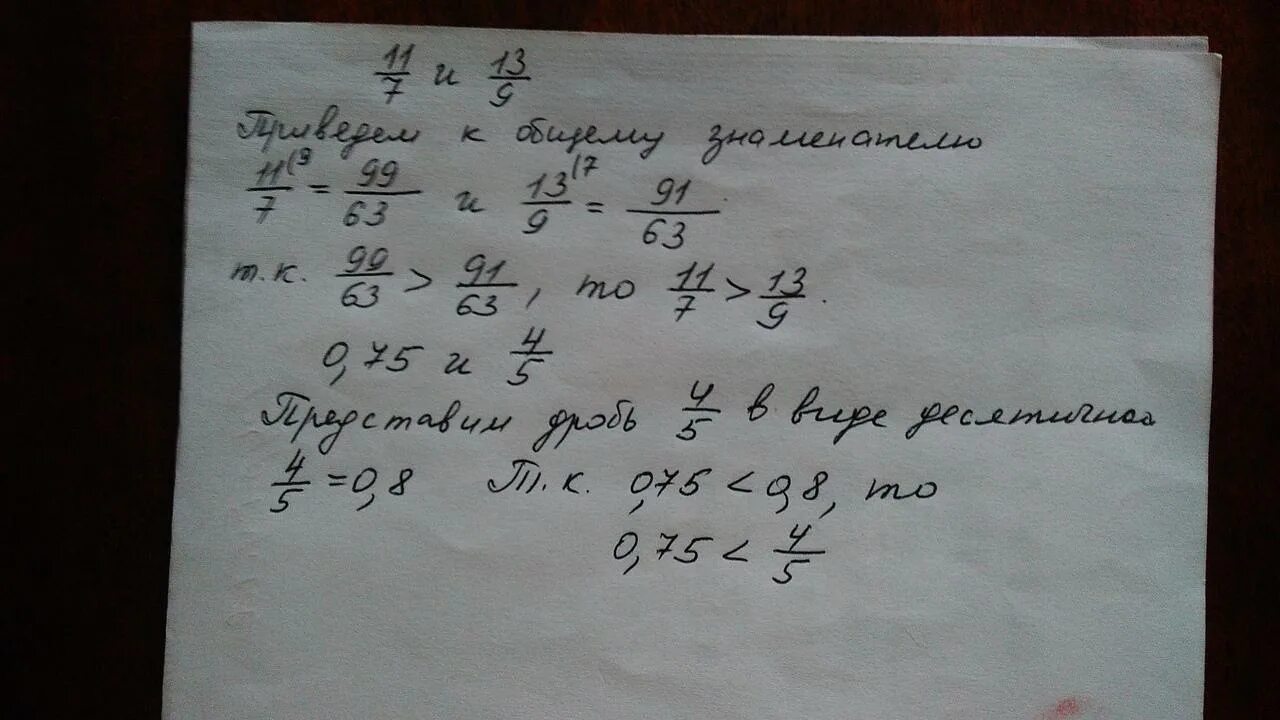 11/7 и 13/9
Приведем к общему знаменателю
11(9/7 = 99/63 и 13(7/9 = 91/63
т.к. 99/63 > 91/63, то 11/7 > 13/9.
0,75 и 4/5
Представим дробь 4/5 в виде десятичной
4/5 = 0,8 Т.к. 0,75 < 0,8, то
0,75 < 4/5